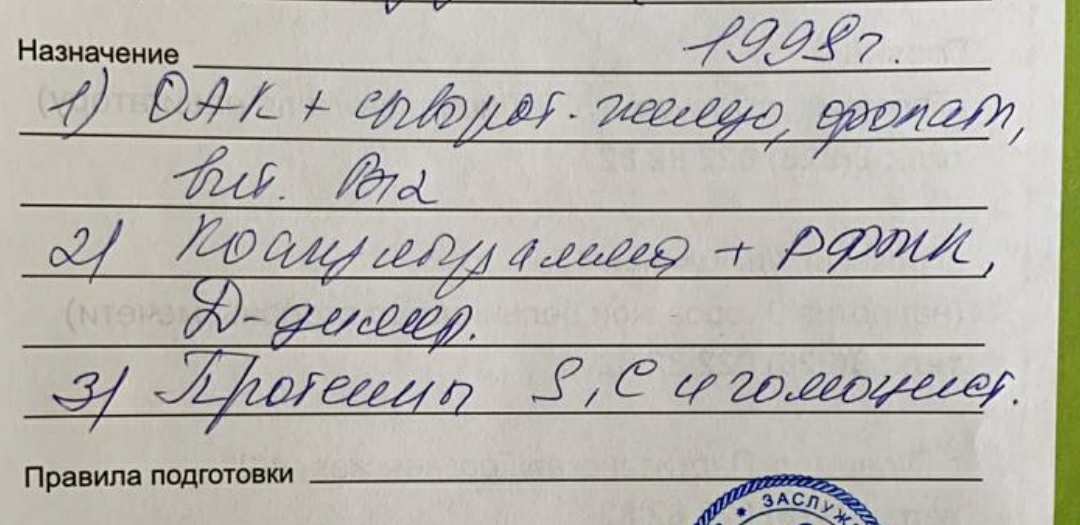 1998г.
Назначение
1) ОАК + сыворот. железо, фолат,
вит. B12
2) Коагулограмма + РФМК,
Д-димер.
3) Протеины S, C и гомоцист.
Правила подготовки
ЗАСЛУЖ